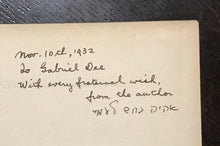 Nov. 10th, 1932
To Gabriel Dee
With every fraternal wish,
from the author